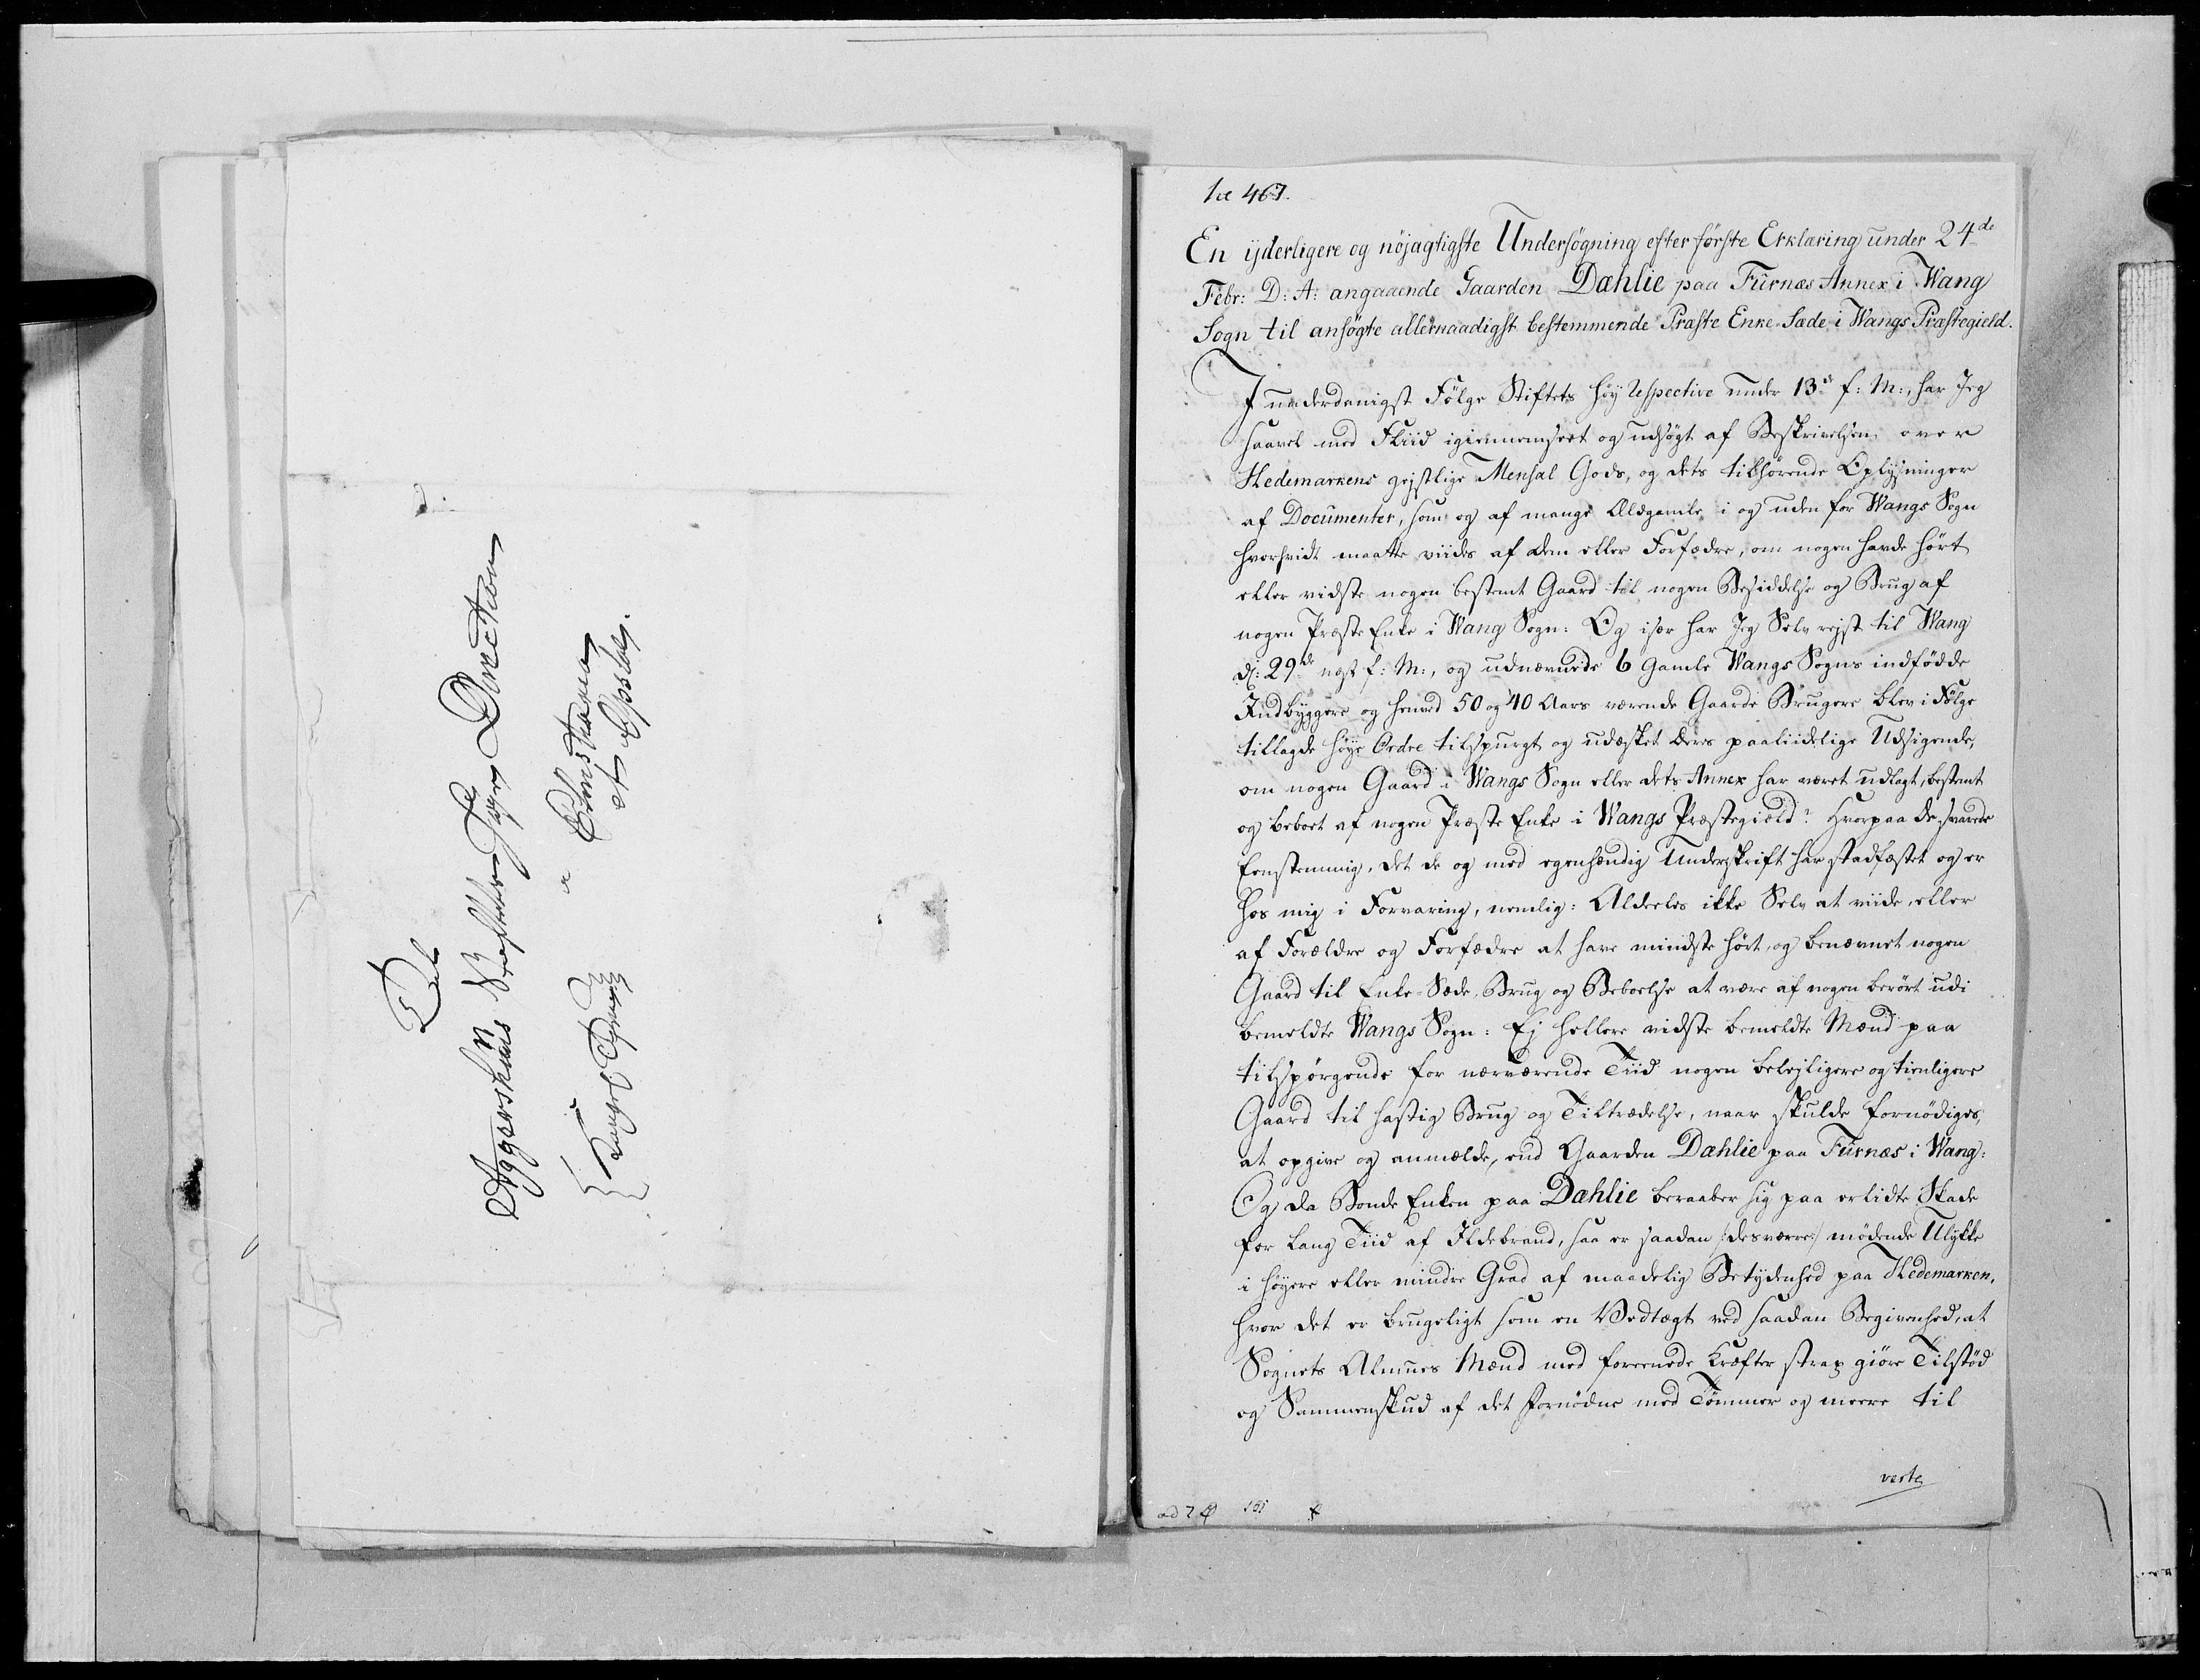 Til
Aggershuus Stifts Høye Direction
i Christiania
et Opslag.
Kongel. Tieneste
No 467.
En ijderligere og nöjagtigste Undersøgning efter første Erklæring under 24de
Febr: D: A: angaaende Gaarden Dæhlie paa Fürnæs Annex i Wang
Sogn til ansøgte allernaadigst bestemmende Præste Enke-Sæde i Wangs Præstegield.
I underdanigst Følge Stiftets høy respective under 13de f: M:, har Jeg
saavel med Fliid igiennemseet og udsøgt af Beskrivelsen over
Hedemarkens gejstlige Mensal Gods, og dets tilhørende Oplysninger
af Documenter, som og af mange Ældgamle i og uden for Wangs Sogn
hvorvidt maatte viides af dem eller Forfædre, om nogen havde hørt
eller vidste nogen bestemt Gaard til nogen Besiddelse og Brug af
nogen Præste Enke i Wang Sogn: Og især har Jeg Selv rejst til Wang
d: 29de næst f: M:, og udnævnede 6 gamle Wangs Sogns indfødde
Indbyggere og henved 50 og 40 Aars værende Gaarde Brugere blev i Følge
tillagde høye Ordre tilspurgt og udæsket deres paaliidelige Udsigende,
om nogen Gaard i Wangs Sogn eller dets Annex har været udlagt, bestemt
og beboet af nogen Præste Enke i Wangs Præstegield? Hvorpaa de svarede
Eenstemmig, det de og med egenhændig Underskrift har stadfæstet og er
hos mig i Forvaring, nemlig: Aldeeles ikke Selv at viide, eller
af Forældre og Forfædre at have mindste hørt, og benævnet nogen
Gaard til Enke-Sæde, Brug og Beboelse at være af nogen berørt udi
bemeldte Wangs Sogn: Ej hellere vidste bemeldte Mænd paa
tilspørgende for nærværende Tiid nogen belejligere og tienligere
Gaard til hastig Brug og Tiltrædelse, naar skulde fornødiges,
at opgive og anmelde, end Gaarden Dæhlie paa Fürnæs i Wang:
Og da Bonde Enken paa Dæhlie beraaber sig paa erlidte Skade
for lang Tiid af Ildebrand, saa er saadan /:desværre:/ mødende Ulykke
i høyere eller mindre Grad af maadelig Betydenhed paa Hedemarken,
hvor det er brugeligt som en Vedtægt ved saadan Begivenhed, at
Sognets Almues Mænd med foreenede Kræfter strax giøre Tilstød
og Sammenskud af det fornødne med Tømmer og meere til
verte
ad 2